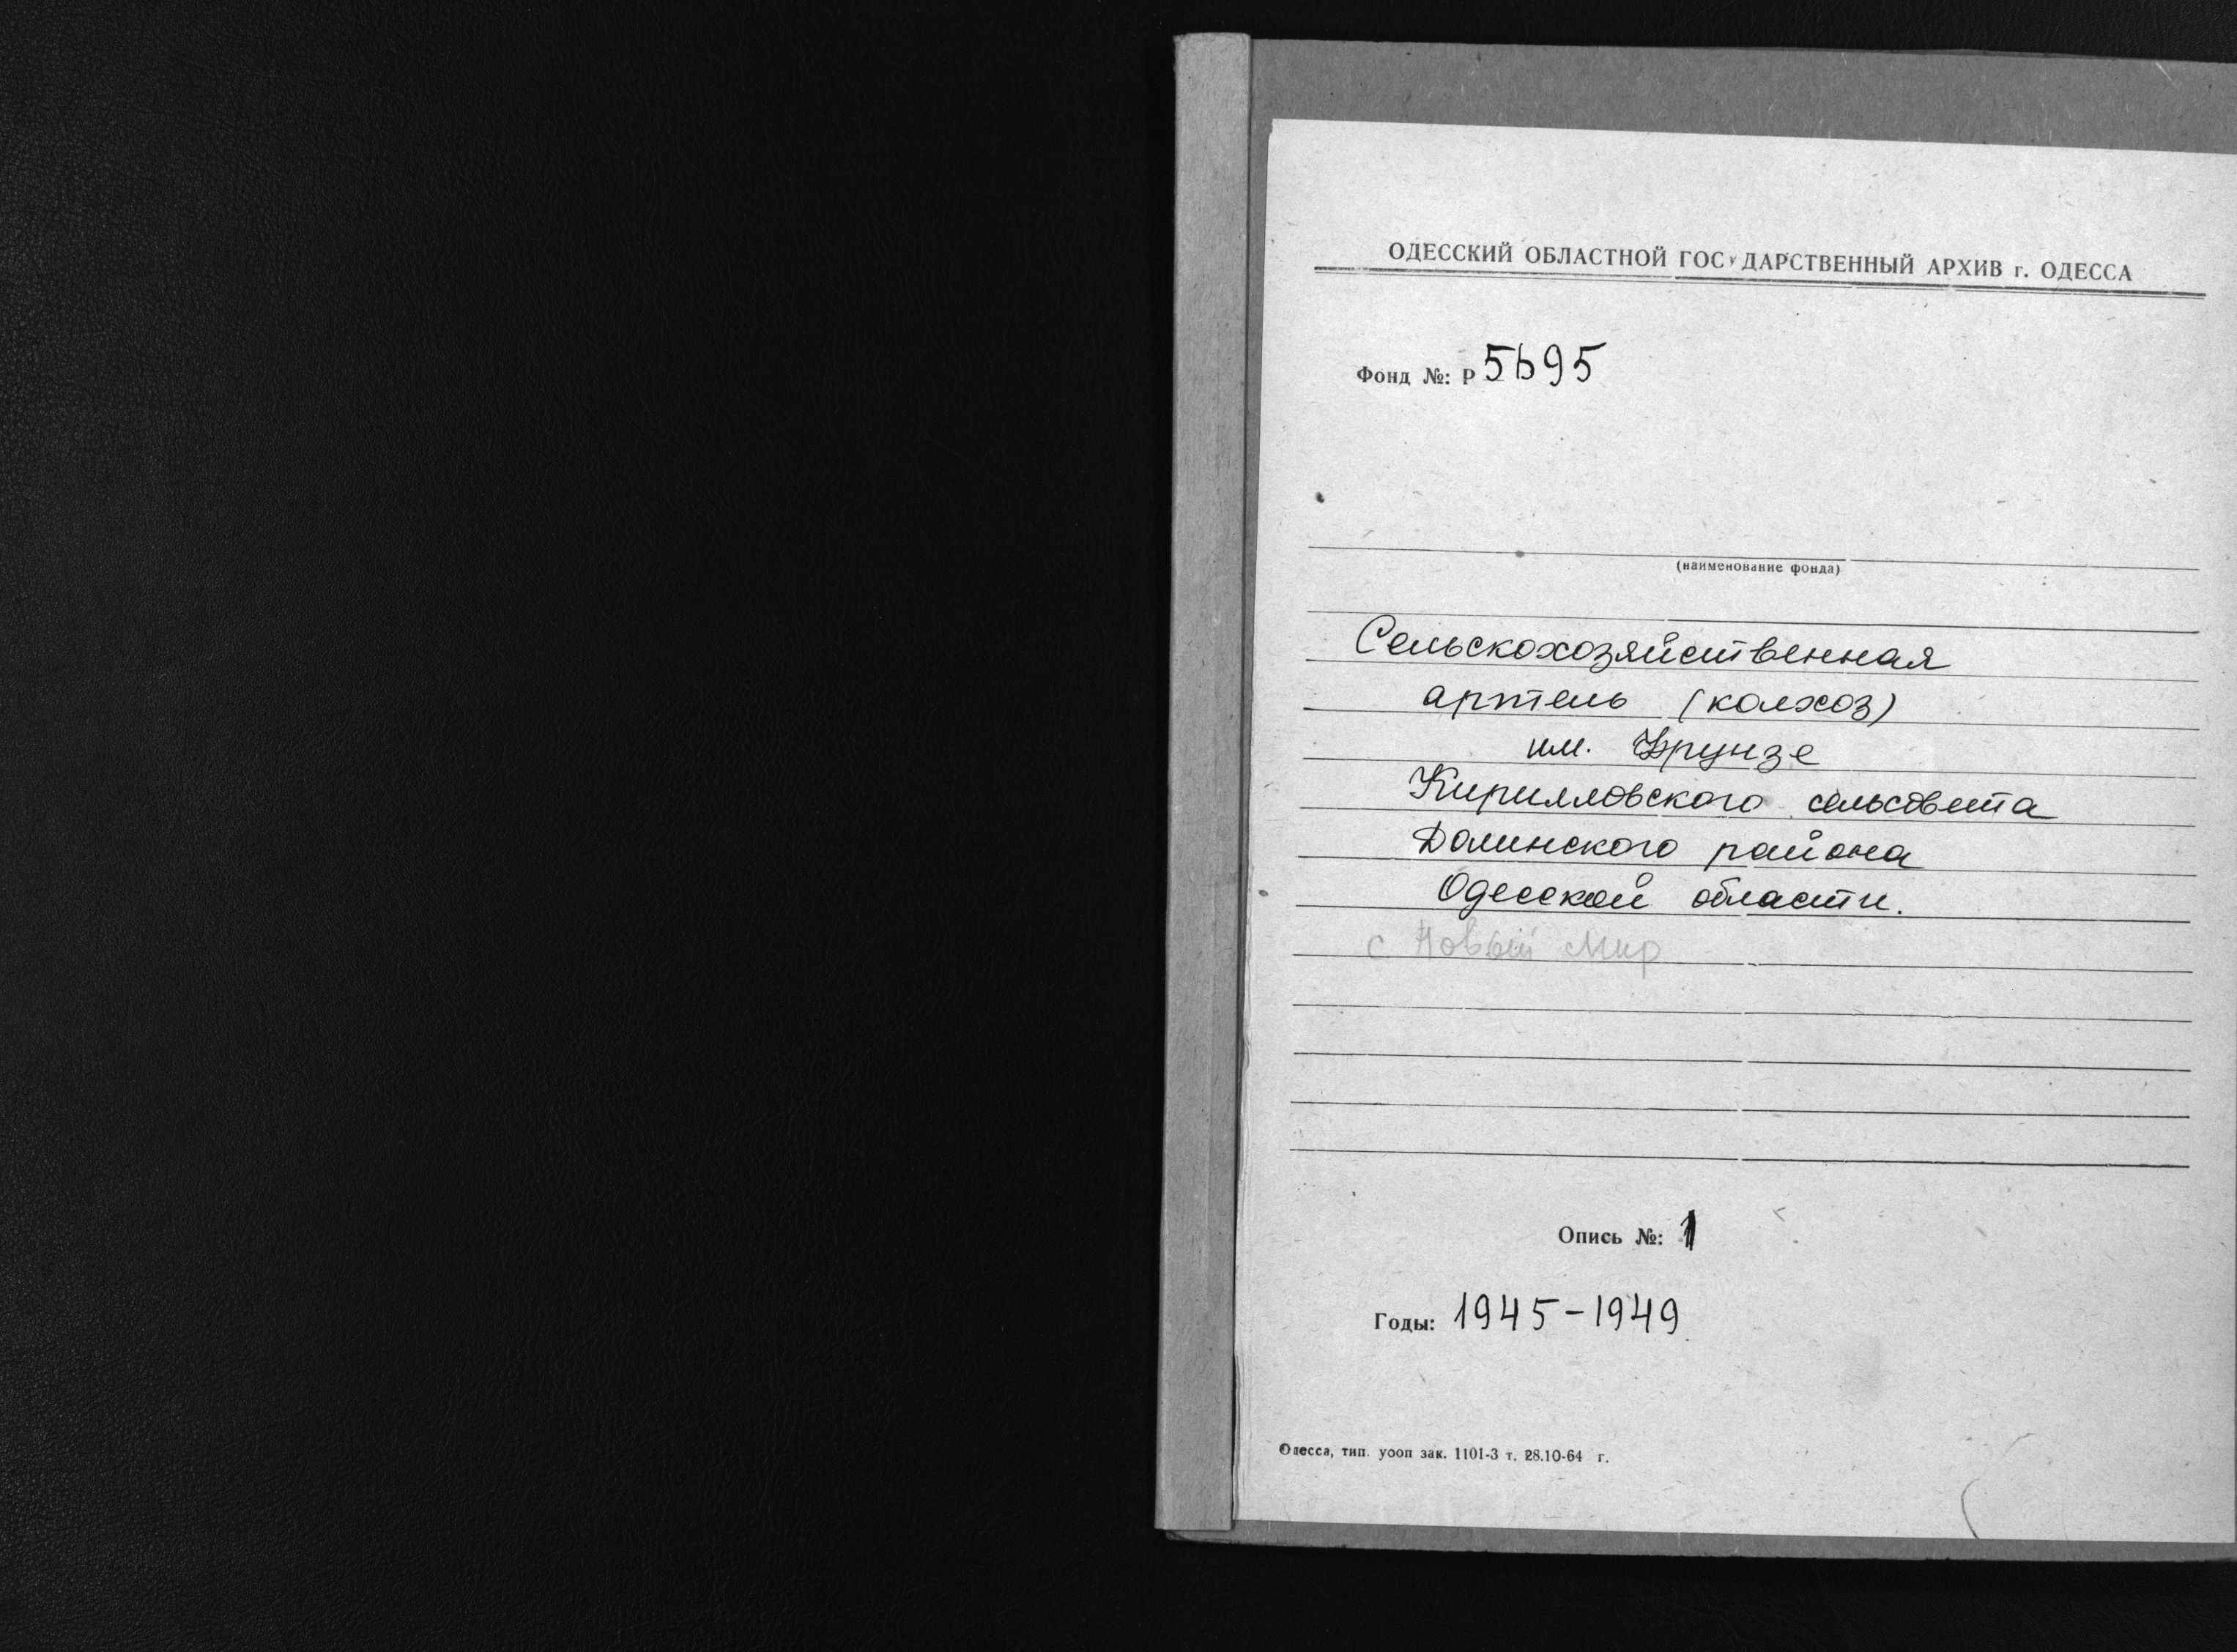 ОДЕССКИЙ ОБЛАСТНОЙ ГОСУДАРСТВЕННЫЙ АРХИВ г. ОДЕССА
Фонд №: Р 5695
(наименование фонда)
Сельскохозяйственная
артель (колхоз)
им. Фрунзе
Кирилловского сельсовета
Долинского района
Одесской области.
с Новый Мир
Опись №: 1
Годы: 1945-1949
Одесса, тип. уооп зак. 1101-3 т. 28.10-64 г.